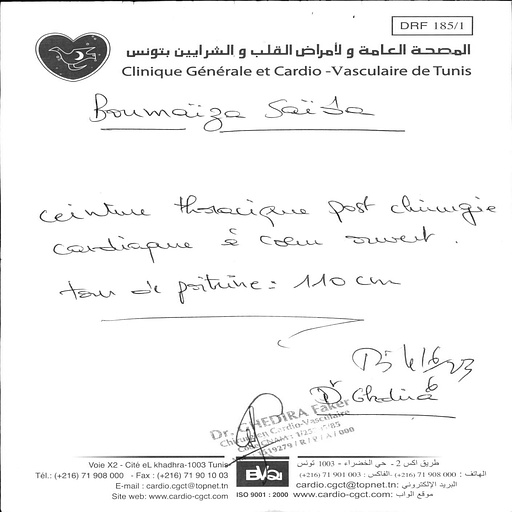 DRF 185/1
المصحة العامة و لأمراض القلب و الشرايين بتونس
Clinique Générale et Cardio -Vasculaire de Tunis
Boumaïza Saïda
ceinture thoracique post chirurgie
cardiaque à coeur ouvert.
tour de poitrine = 110 cm
Dr Ghedira
Dr. GHEDIRA Faker
Chirurgien Cardio-Vasculaire
Voie X2 - Cité eL khadhra-1003 Tunis
Tél.: (+216) 71 908 000 - Fax : (+216) 71 90 10 03
E-mail : cardio.cgct@topnet.tn
Site web: www.cardio-cgct.com
ISO 9001 : 2000
طريق اكس 2 - حي الخضراء - 1003 تونس
الهاتف : 000 908 71 (216+) الفاكس : 003 901 71 (216+)
البريد الإلكتروني :cardio.cgct@topnet.tn
موقع الواب :www.cardio-cgct.com